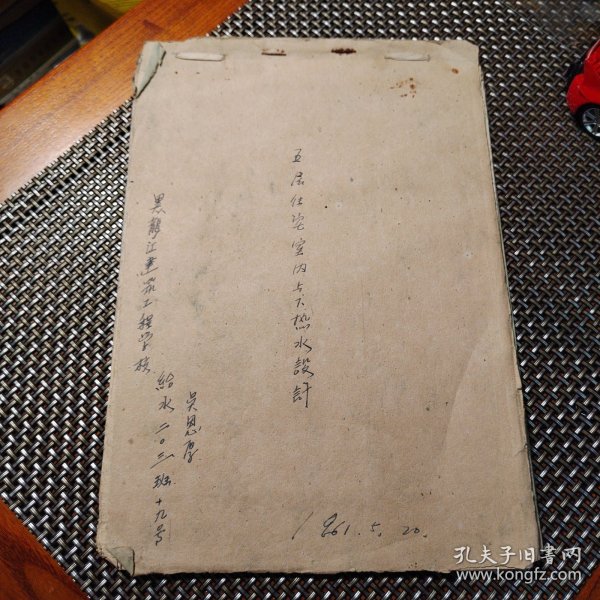 五层住宅室内上下热水設計
黑龍江建筑工程学校
給水二〇三班十九号
吴恩厚
1961.5.20.
孔夫子旧書网
www.kongfz.com